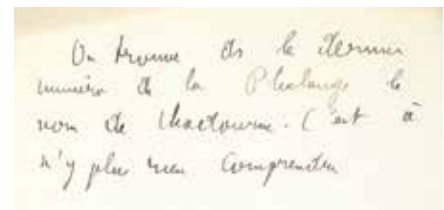 On trouve ds le dernier
numéro de la Phalange le
nom de Chadourne. C'est à
n'y plus rien comprendre